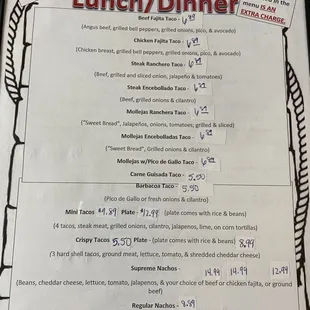 Lunch/Dinner
in the
menu IS AN
EXTRA CHARGE.
Beef Fajita Taco -
(Angus beef, grilled bell peppers, grilled onions, pico, & avocado)
Chicken Fajita Taco -
(Chicken breast, grilled bell peppers, grilled onions, pico, & avocado)
Steak Ranchero Taco -
(Beef, grilled and sliced onion, jalapeño & tomatoes)
Steak Encebollado Taco -
(Beef, grilled onions & cilantro)
Mollejas Ranchera Taco -
("Sweet Bread", Jalapeños, onions, tomatoes; grilled & sliced)
Mollejas Encebolladas Taco -
("Sweet Bread", Grilled onions & cilantro)
Mollejas w/Pico de Gallo Taco -
Carne Guisada Taco - 5.50
Barbacoa Taco - 5.50
(Pico de Gallo or fresh onions & cilantro)
Mini Tacos $9.89 Plate - $12.99 (plate comes with rice & beans)
(4 tacos, steak meat, grilled onions, cilantro, jalapenos, lime, on corn tortillas)
Crispy Tacos 5.50 Plate - (plate comes with rice & beans) 8.99
(3 hard shell tacos, ground meat, lettuce, tomato, & shredded cheddar cheese)
Supreme Nachos - 14.99 14.99 12.99
(Beans, cheddar cheese, lettuce, tomato, jalapenos, & your choice of beef or chicken fajita, or ground
beef)
Regular Nachos - 8.89